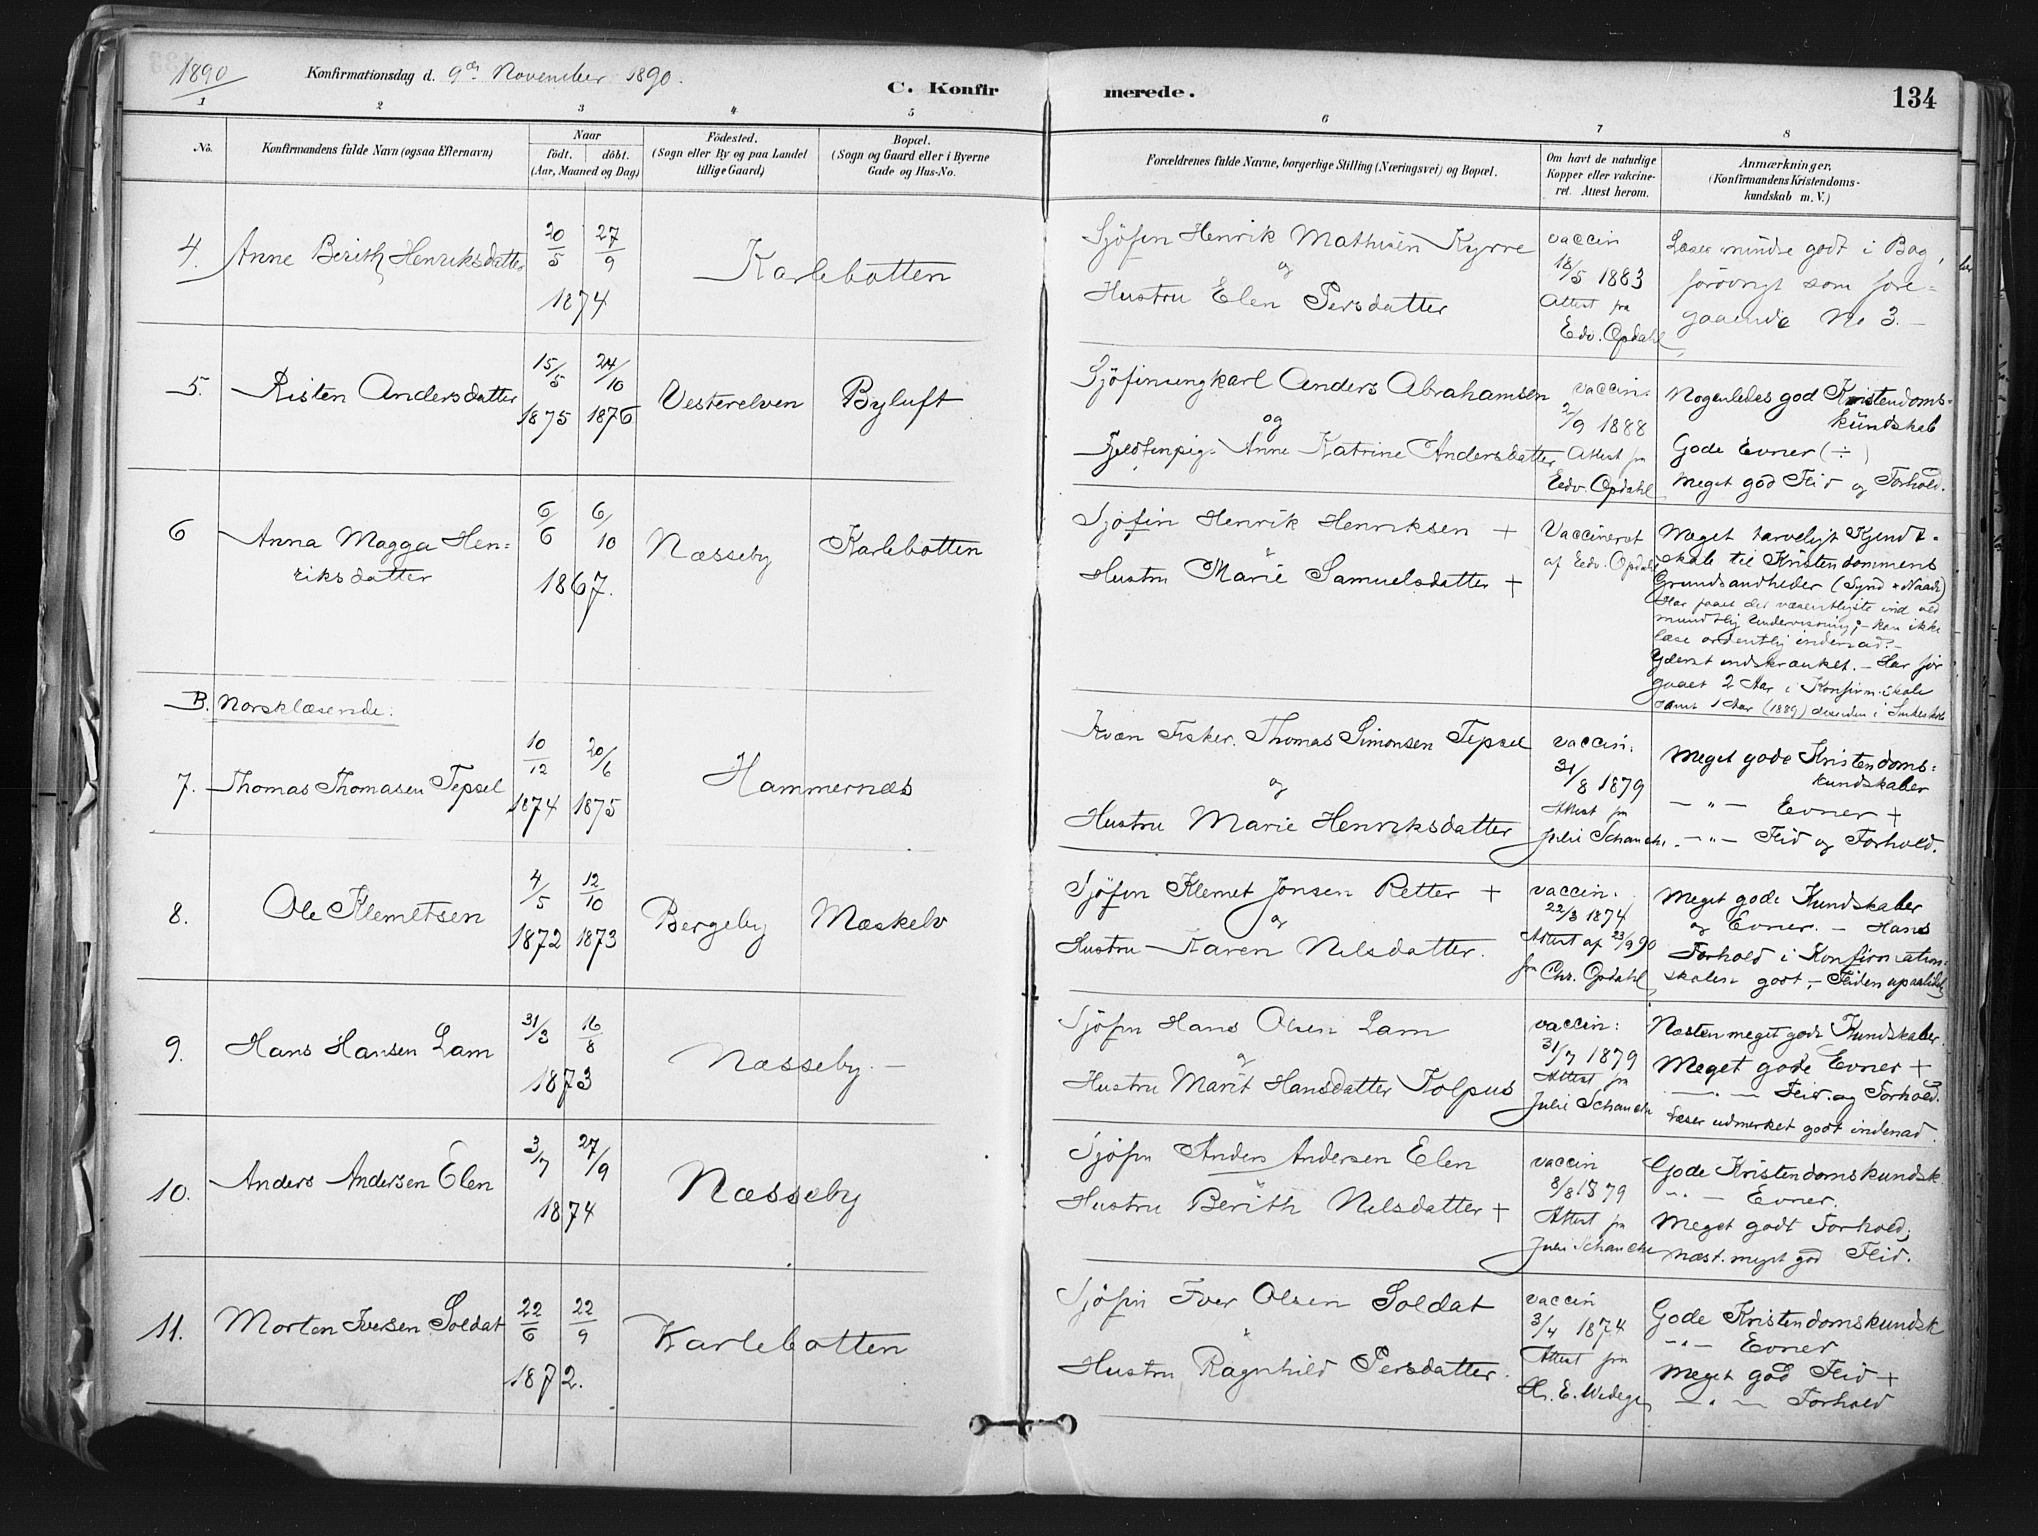 1890
Konfirmationsdag d. 9de November 1890.
C. Konfirmerede.
134
1 2 3 4 5 6 7 8
No.
Konfirmandens fulde Navn (ogsaa Efternavn)
Naar
födt. döbt.
(Aar, Maaned og Dag)
Födested.
(Sogn eller By og paa Landet
tillige Gaard)
Bopæl.
(Sogn og Gaard eller i Byerne
Gade og Hus-No.
Forældrenes fulde Navne, borgerlige Stilling (Næringsvei) og Bopæl.
Om havt de naturlige
Kopper eller vakcine-
ret. Attest herom.
Anmærkninger,
(Konfirmandens Kristendoms-
kundskab m. V.)
4. Anne Berith Henriksdatter
20/5 27/9
1874
Karlebotten
Sjöfin Henrik Mathisen Kyrre
og
Hustru Elen Persdatter
vaccin
18/5 1883
Attest fra
Edv. Opdahl
Læser mindre godt i Bog,
forövrigt som fore=
gaaende No 3.-
5. Risten Andersdatter
15/5 24/10
1875 1876
Vesterelven
Byluft
Sjöfinungkarl Anders Abrahamsen
og
Fjeldfinpige Anne Katrine Andersdatter
vaccin.
2/9 1888
Attest fra
Edv. Opdahl
Nogenledes god Kristendoms=
kundskab
Gode Evner (÷)
Meget god Flid og Forhold.
6 Anna Magga Hen=
riksdatter
6/6 6/10
1867.
Næsseby
Karlebotten
Sjöfin Henrik Henriksen +
"
Hustru Marie Samuelsdatter +
Vaccineret
af Edv. Opdahl
Meget tarveligt Kjendt-
skab til Kristendommens
Grundsandheder (Synd & Naade)
Har faaet det væsentligste ind ved
mundtlig Undervisning; - kan ikke
læse ordentlig indenad. -
Yderst indskrænket. - Har for
gaaet 2 Aar i Konfirm. skole
samt 1 Aar (1889) desuden i
B. Norsklæsende:
7. Thomas Thomasen Tepsel
10/12 20/6
1874 1875
Hammernæs
Kvæn Fisker. Thomas Simonsen Tepsel
og
Hustru Marie Henriksdatter
vaccin:
31/8 1879
Attest fra
Julie Schanche.
Meget gode Kristendoms=
kundskaber
- " - Evner +
- " - Flid og Forhold.
8. Ole Klemetsen
4/5 12/10
1872 1873
Bergeby
Mæskelv
Sjöfin Klemet Jonsen Retter +
og
Hustru Karen Nilsdatter.
vaccin:
22/3 1874
Attest af 23/9 90
fra Chr. Opdahl
Meget gode Kundskaber
og Evner. - Hans
Forhold i Konfirmations=
skolen godt, - Fliden upaalidelig
9. Hans Hansen Lam
31/3 16/8
1873
Næsseby. -
Sjöfin Hans Olsen Lam
og
Hustru Marit Hansdatter Kolpus
vaccin:
31/7 1879
Attest fra
Julie Schanche
Næsten meget gode Kundskaber.
Meget gode Evner +
- " - Flid og Forhold.
Læser udmerket godt indenad.
10. Anders Andersen Elen
3/7 27/9
1874
Næsseby
Sjöfin Anders Andersen Elen
"
Hustru Berith Nilsdatter +
vaccin
8/8 1879
Attest fra
Julie Schanche
Gode Kristendomskundsk
- " - Evner.
Meget godt Forhold;
næst. meget god Flid.
11. Morten Iversen Soldat
22/6 22/9
1872.
Karlebotten
Sjöfin Iver Olsen Soldat
"
Hustru Ragnhild Persdatter.
vaccin
3/4 1874
Attest fra
H. E. Wedege
Gode Kristendomskundsk
- " - Evner
Meget god Flid +
- " - Forhold